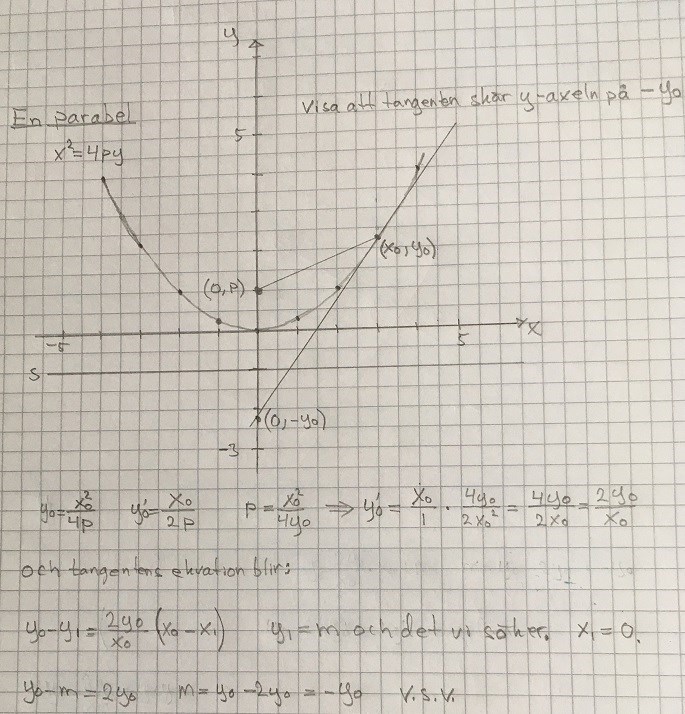 y
Visa att tangenten skär y-axeln på -y₀
En parabel
5
x²=4py
(x₀,y₀)
(0,p)
x
-5
5
s
(0,-y₀)
-3
y₀=x₀²/4p y₀'=x₀/2p p=x₀²/4y₀ ⇒ y₀'=x₀/1 · 4y₀/2x₀² = 4y₀/2x₀ = 2y₀/x₀
och tangentens ekvation blir:
y₀-y₁=2y₀/x₀ (x₀-x₁) y₁=m och det vi söker. x₁=0.
y₀-m=2y₀ m=y₀-2y₀=-y₀ V.S.V.